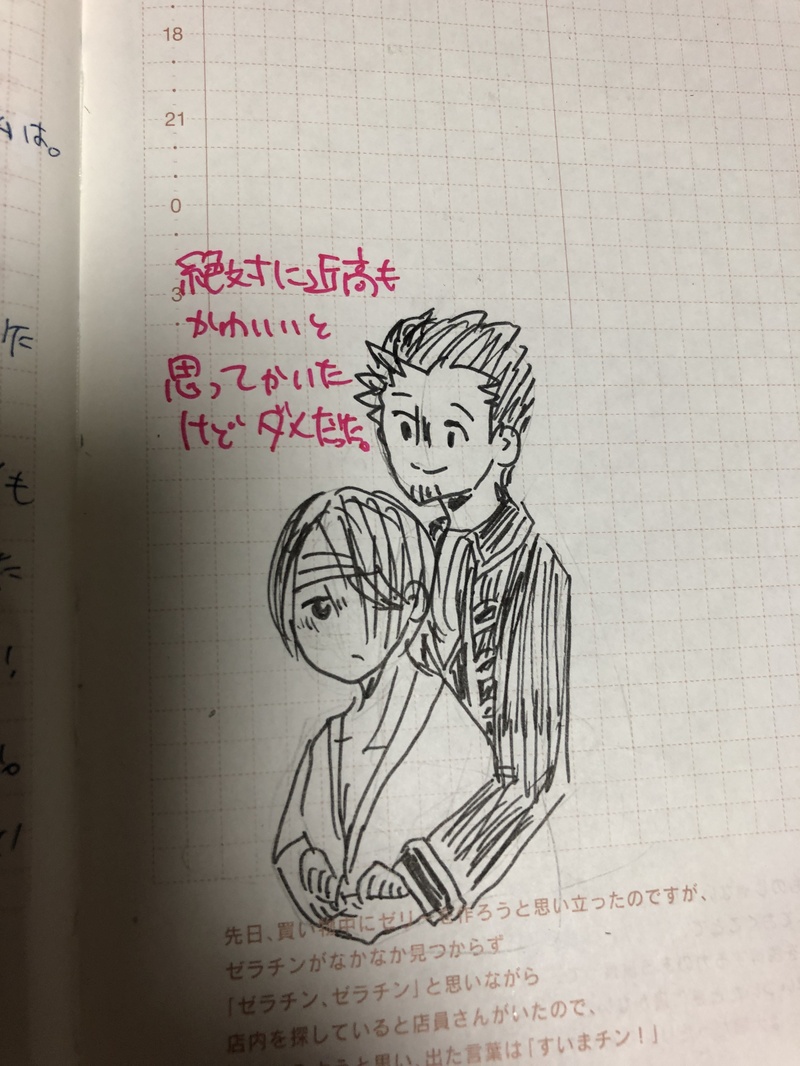 18
21
0
3
絶対に近高も
かわいいと
思ってかいた
けどダメだった。
は。
も
先日、買い物中にゼリーを作ろうと思い立ったのですが、
ゼラチンがなかなか見つからず
「ゼラチン、ゼラチン」と思いながら
店内を探していると店員さんがいたので、
と思い、出た言葉は「すいまチン！」